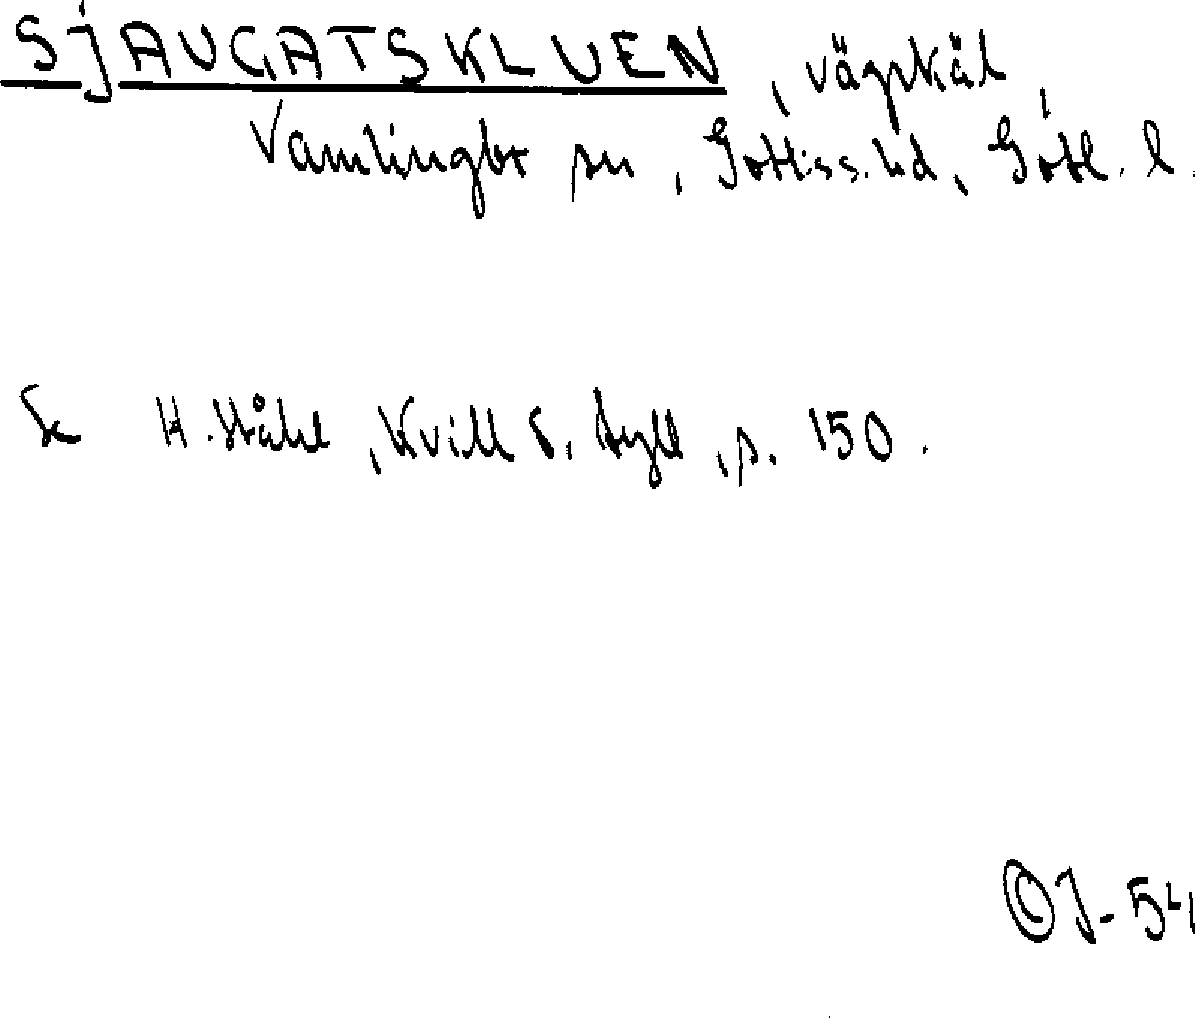 SjAUGATSKLUEN, vägskäl,
Vamlingbo sn, Gotl:s s. hd, Gotl. l.
Se H. Ståhl, Kvill o. tyll, s. 150.
OJ-54